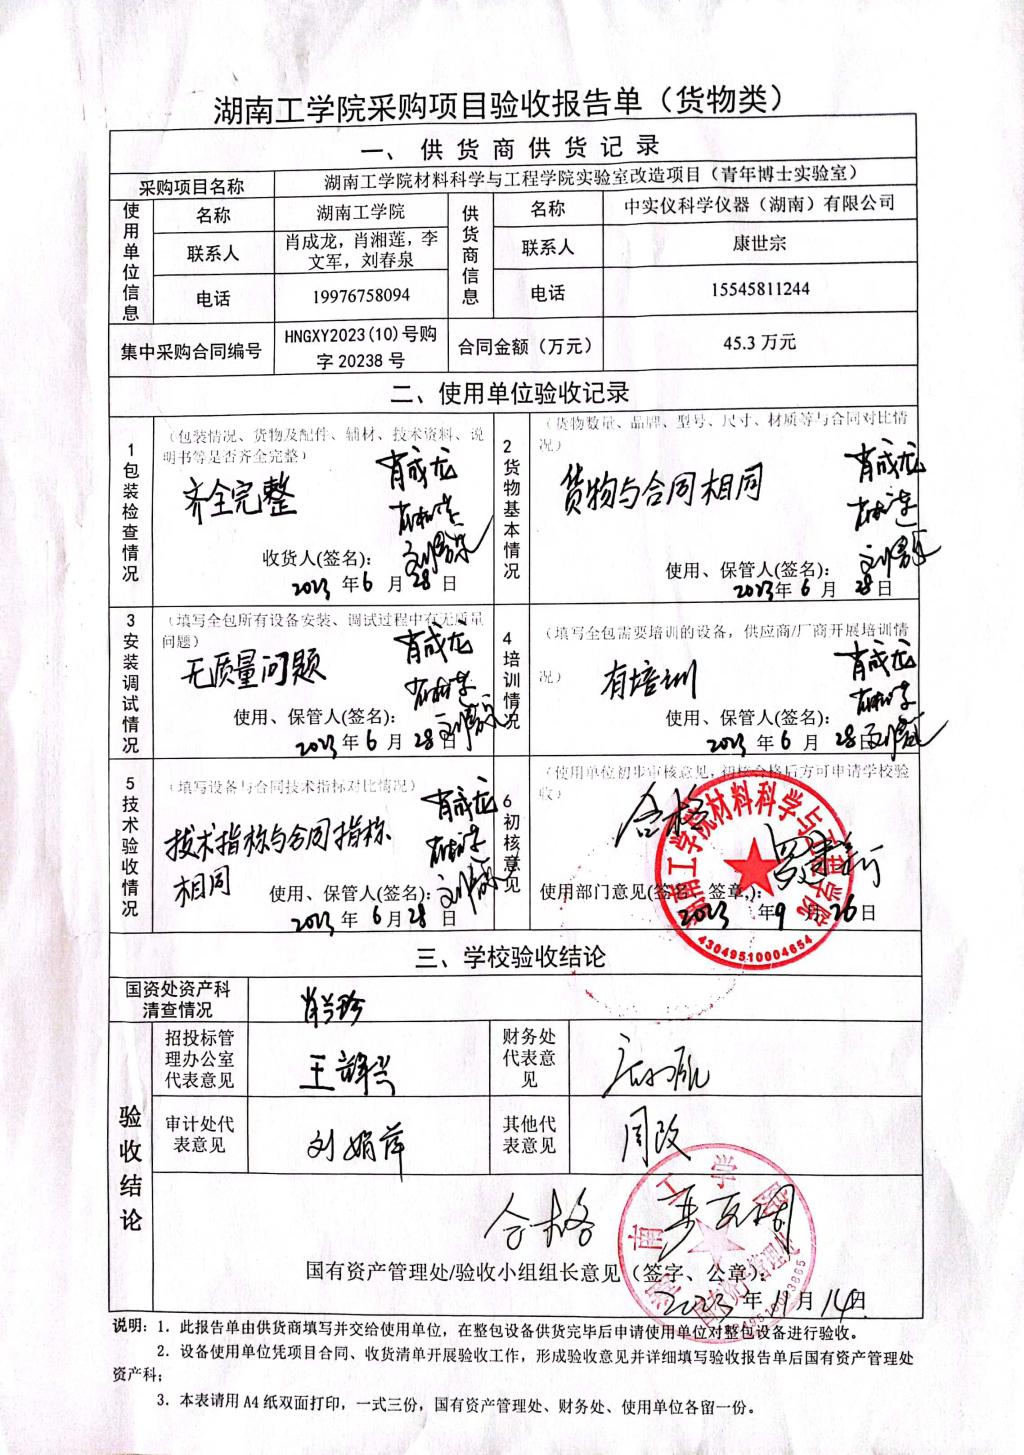 湖南工学院采购项目验收报告单（货物类）
一、供货商供货记录
采购项目名称
湖南工学院材料科学与工程学院实验室改造项目（青年博士实验室）
使用单位信息
名称
湖南工学院
供货商信息
名称
中实仪科学仪器（湖南）有限公司
联系人
肖成龙，肖湘莲，李
文军，刘春泉
联系人
康世宗
电话
19976758094
电话
15545811244
集中采购合同编号
HNGXY2023(10)号购
字20238号
合同金额（万元）
45.3万元
二、使用单位验收记录
1包装检查情况
（包装情况、货物及配件、辅材、技术资料、说
明书等是否齐全完整）
齐全完整
肖成龙
收货人(签名):
2023年6月28日
2货物基本情况
（货物数量、品牌、型号、尺寸、材质等与合同对比情
况）
货物与合同相同
肖成龙
使用、保管人(签名):
2023年6月28日
3安装调试情况
（填写全包所有设备安装、调试过程中有无质量
问题）
无质量问题
肖成龙
使用、保管人(签名):
2023年6月28日
4培训情况
（填写全包需要培训的设备，供应商/厂商开展培训情
况）
有培训
肖成龙
使用、保管人(签名):
2023年6月28日
5技术验收情况
（填写设备与合同技术指标对比情况）
技术指标与合同指标
相同
肖成龙
使用、保管人(签名):
2023年6月28日
6初核意见
（使用单位初步审核意见，初核合格后方可申请学校验
收）
合格
使用部门意见(签名、签章,):
2023年9月26日
湖南工学院材料科学与工程学院
43049510004654
三、学校验收结论
国资处资产科
清查情况
肖兰珍
验收结论
招投标管
理办公室
代表意见
财务处
代表意
见
审计处代
表意见
刘娟萍
其他代
表意见
周改
合格
国有资产管理处/验收小组组长意见（签字、公章）:
2023年11月14日
湖南工学院
国有资产管理处
说明：1．此报告单由供货商填写并交给使用单位，在整包设备供货完毕后申请使用单位对整包设备进行验收。
2．设备使用单位凭项目合同、收货清单开展验收工作，形成验收意见并详细填写验收报告单后国有资产管理处
资产科；
3．本表请用A4纸双面打印，一式三份，国有资产管理处、财务处、使用单位各留一份。